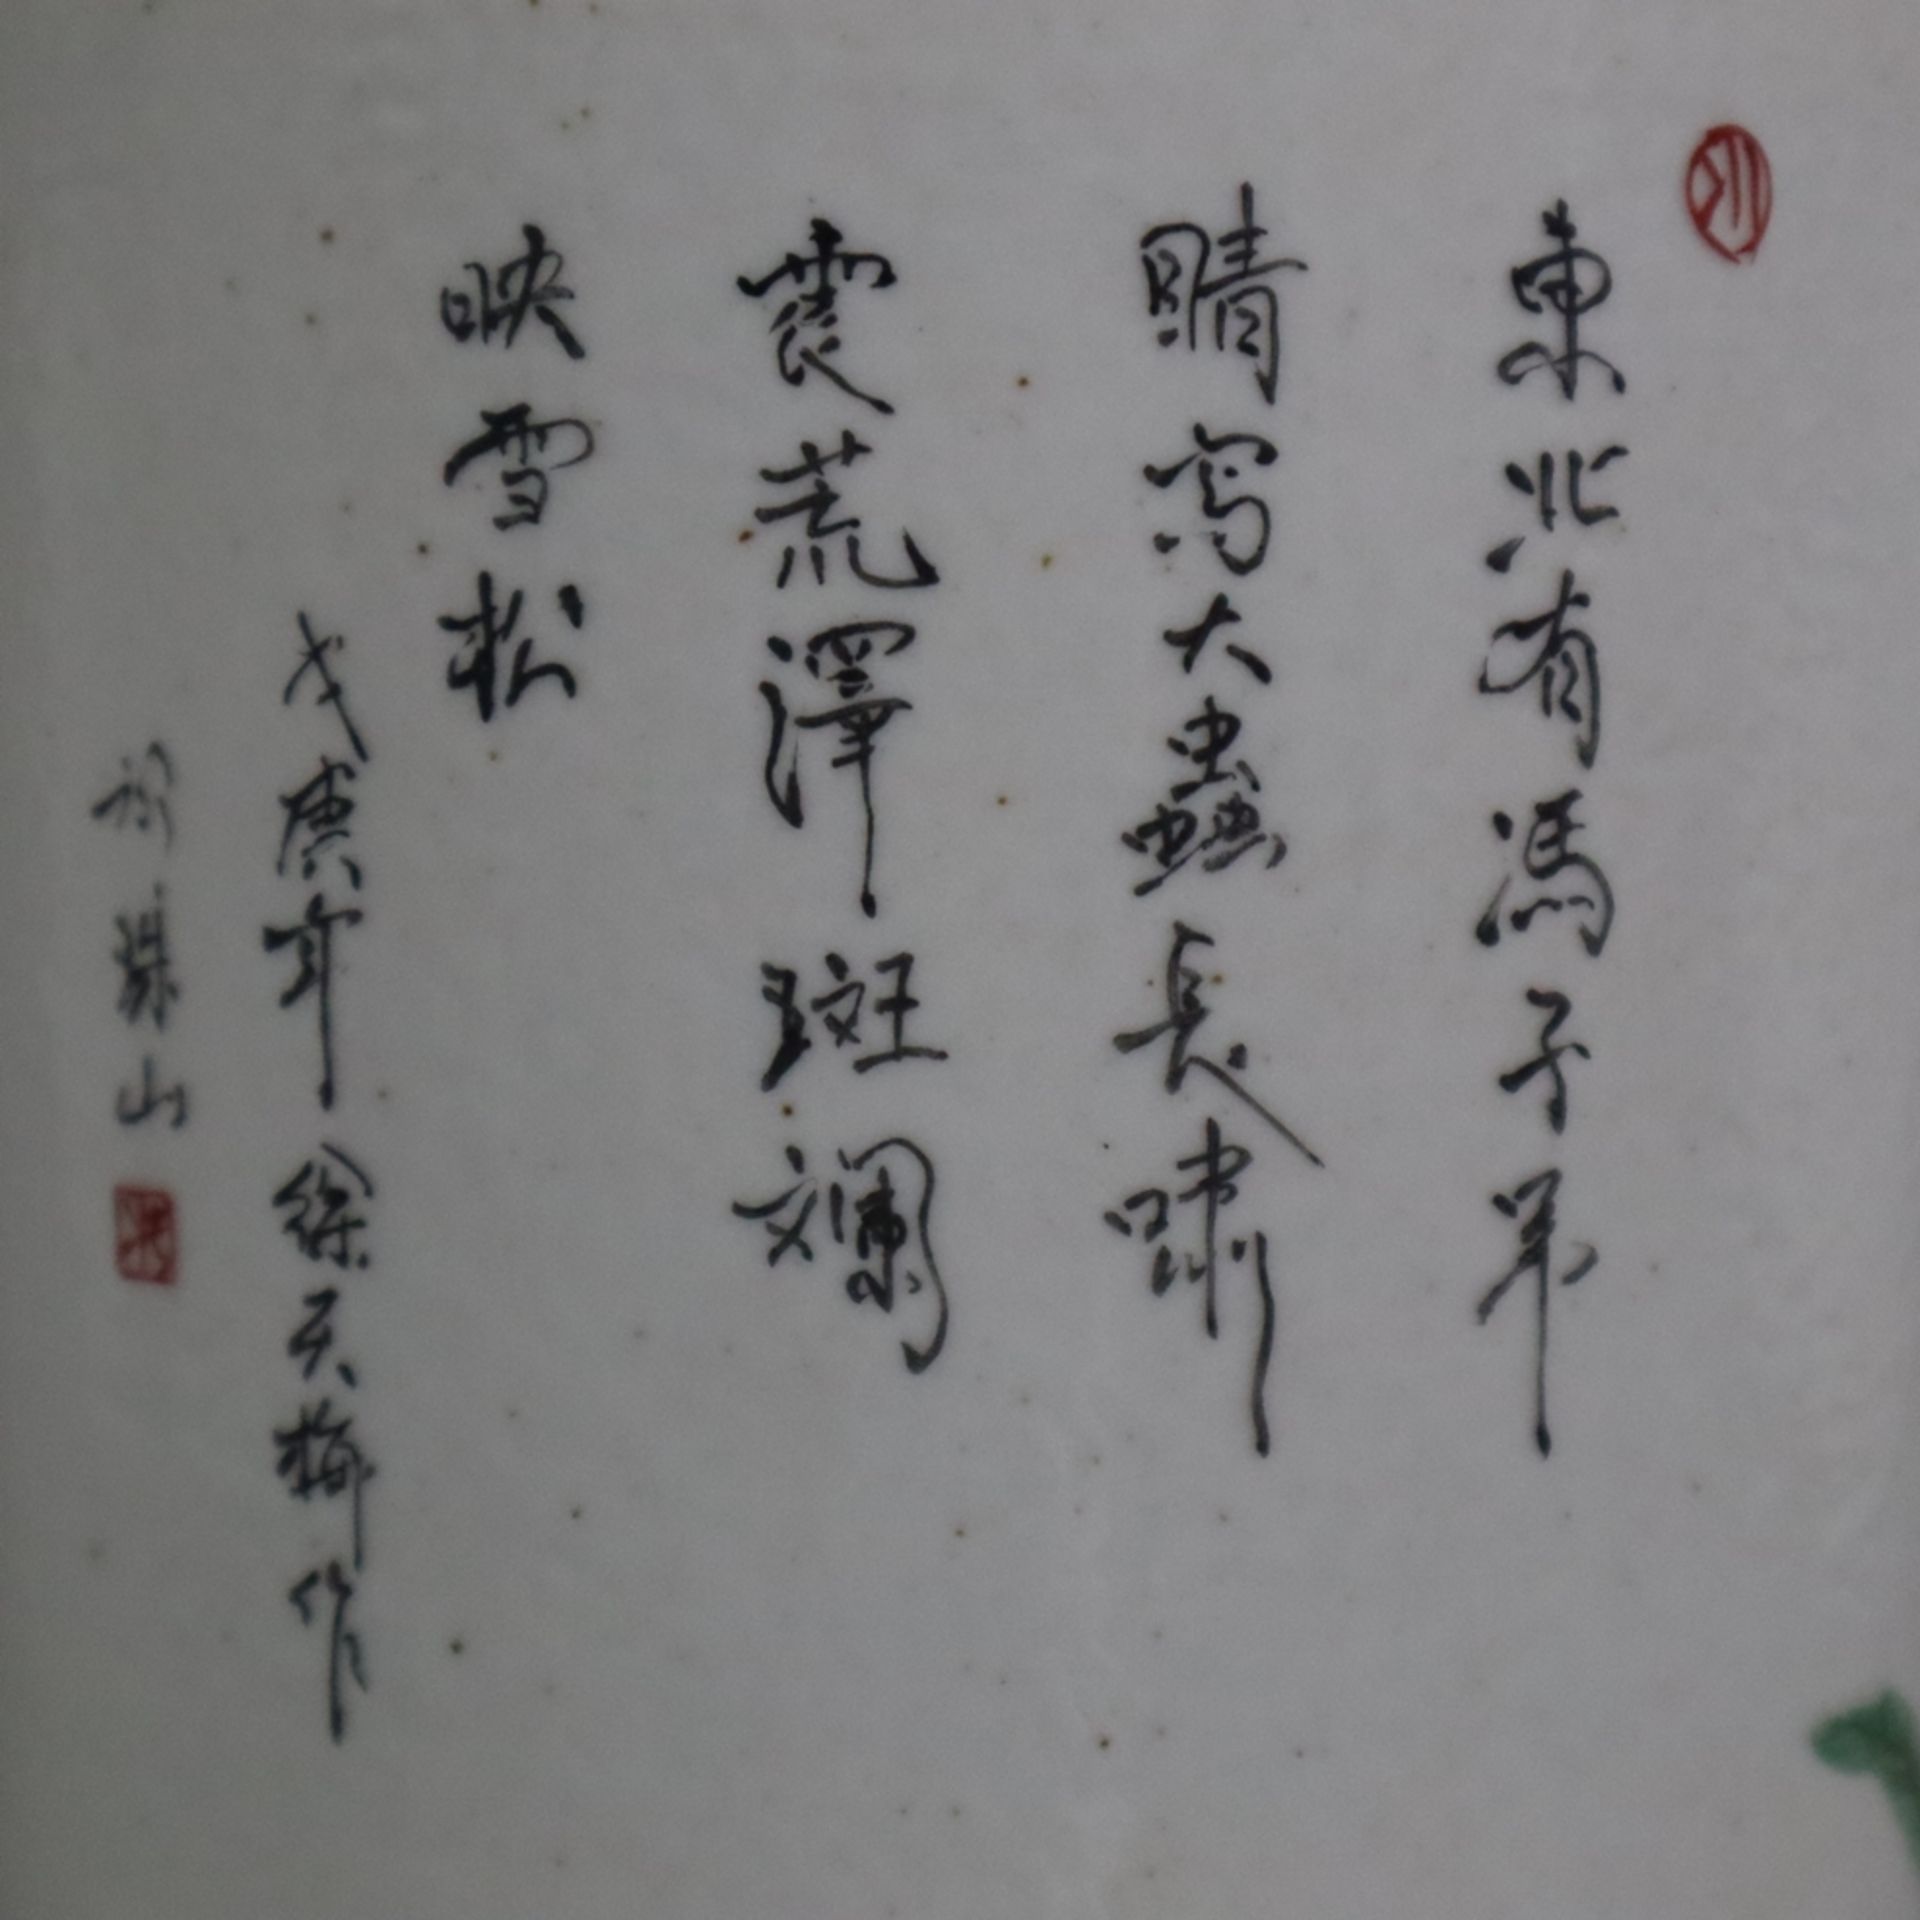 東北有馮子
睛寫大蟲長嘯
震荒澤斑斕
映雪松
戊庚年徐天梅作
於珠山